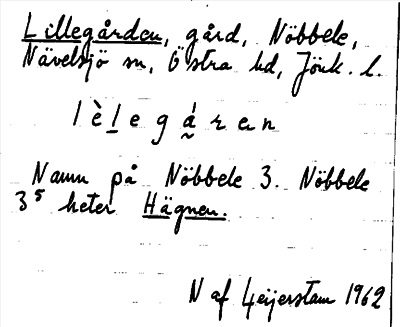 Lillegården, gård, Nöbbele,
Nävelsjö sn, Östra hd, Jönk. l.
lèlegá̰ren
Namn på Nöbbele 3. Nöbbele
3⁵ heter Hägnen.
N af Geijerstam 1962